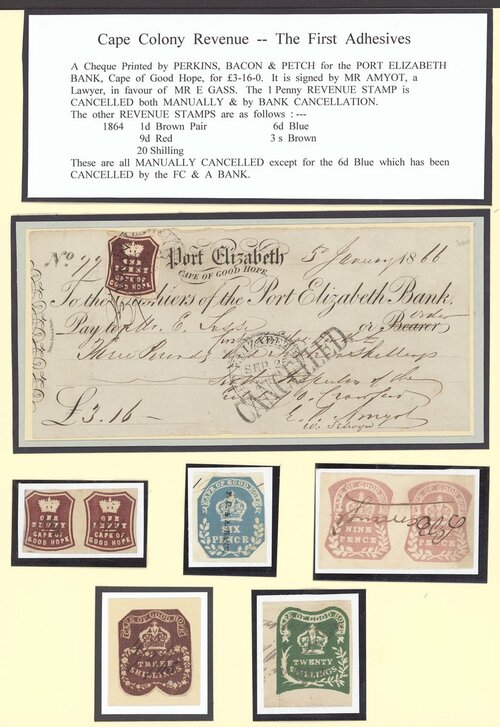 Cape Colony Revenue -- The First Adhesives
A Cheque Printed by PERKINS, BACON & PETCH for the PORT ELIZABETH
BANK, Cape of Good Hope, for £3-16-0. It is signed by MR AMYOT, a
Lawyer, in favour of MR E GASS. The 1 Penny REVENUE STAMP is
CANCELLED both MANUALLY & by BANK CANCELLATION.
The other REVENUE STAMPS are as follows : ---
1864 1d Brown Pair 6d Blue
9d Red 3 s Brown
20 Shilling
These are all MANUALLY CANCELLED except for the 6d Blue which has been
CANCELLED by the FC & A BANK.
ONE
PENNY
CAPE OF
GOOD HOPE
No
Port Elizabeth
CAPE OF GOOD HOPE.
5 January 1866
To the Cashiers of the Port Elizabeth Bank,
Pay to Mr E. Gass or Bearer
Order
Three Pounds Shillings
SEP 25
CANCELLED
£3.16 —
E. Amyot
ONE
PENNY
CAPE OF
GOOD HOPE
ONE
PENNY
CAPE OF
GOOD HOPE
CAPE OF GOOD HOPE
SIX
PENCE
CAPE OF GOOD HOPE
NINE
PENCE
CAPE OF GOOD HOPE
NINE
PENCE
CAPE OF GOOD HOPE
THREE
SHILLINGS
CAPE OF GOOD HOPE
TWENTY
SHILLINGS